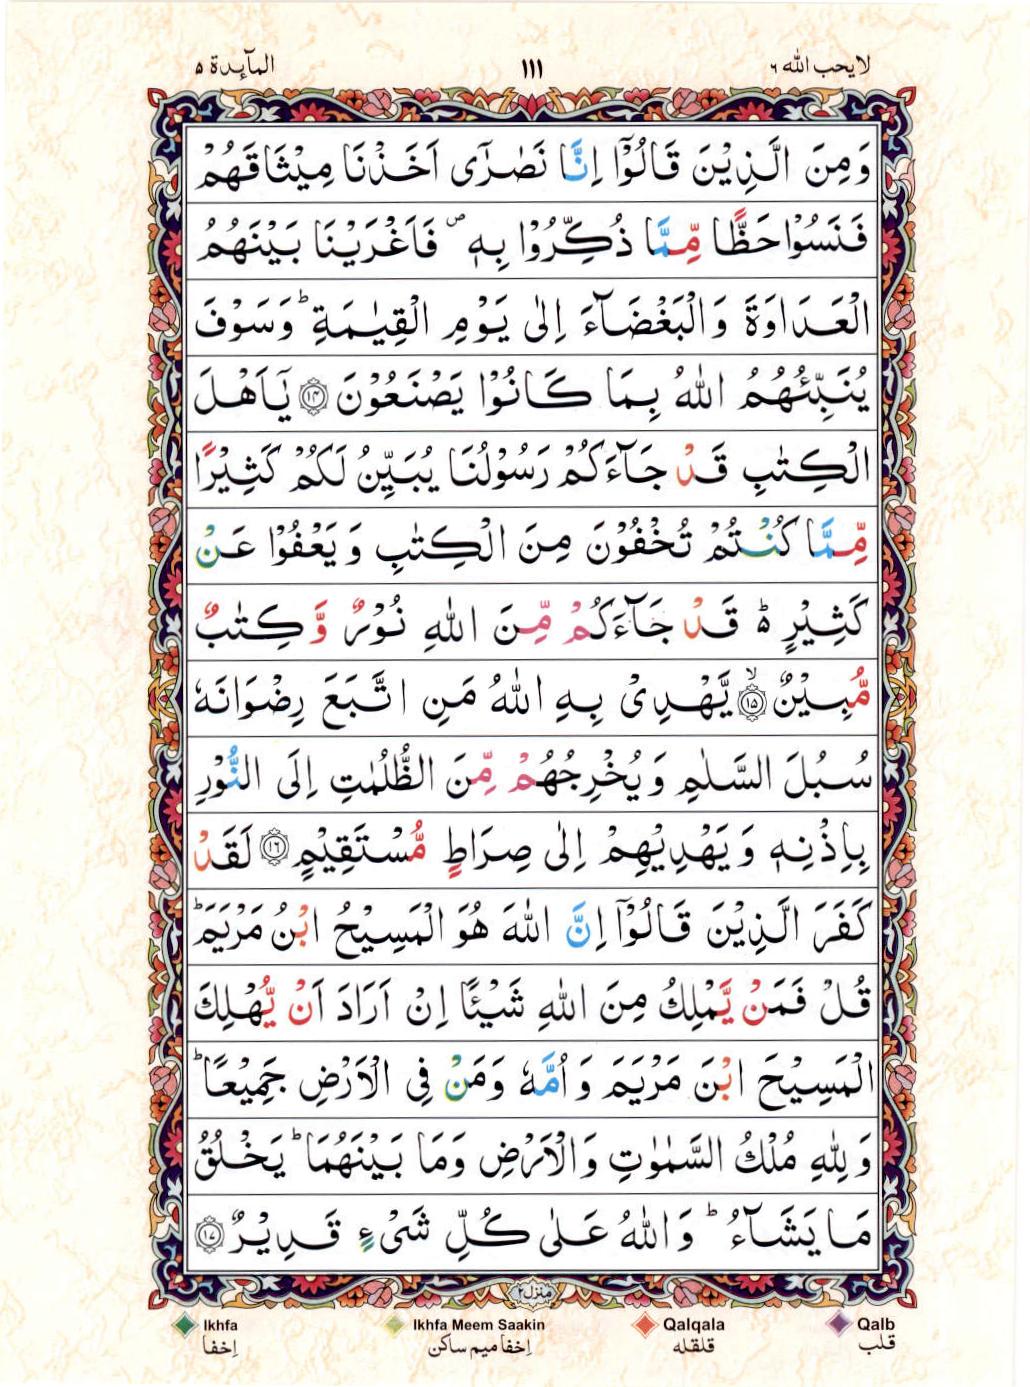 لايحب الله ٦ ١١١ المآىِٕدة ۵
وَمِنَ الَّذِيْنَ قَالُوْٓا اِنَّا نَصٰرٰٓى اَخَذْنَا مِيْثَاقَهُمْ
فَنَسُوْا حَظًّا مِّمَّا ذُكِّرُوْا بِهٖ ۪ فَاَغْرَيْنَا بَيْنَهُمُ
الْعَدَاوَةَ وَالْبَغْضَآءَ اِلٰى يَوْمِ الْقِيٰمَةِ ؕ وَسَوْفَ
يُنَبِّئُهُمُ اللّٰهُ بِمَا كَانُوْا يَصْنَعُوْنَ ﴿۱۴﴾ يٰۤاَهْلَ
الْكِتٰبِ قَدْ جَآءَكُمْ رَسُوْلُنَا يُبَيِّنُ لَكُمْ كَثِيْرًا
مِّمَّا كُنْتُمْ تُخْفُوْنَ مِنَ الْكِتٰبِ وَيَعْفُوْا عَنْ
كَثِيْرٍ ۬ؕ قَدْ جَآءَكُمْ مِّنَ اللّٰهِ نُوْرٌ وَّكِتٰبٌ
مُّبِيْنٌ ۙ﴿۱۵﴾ يَّهْدِىْ بِهِ اللّٰهُ مَنِ اتَّبَعَ رِضْوَانَهٗ
سُبُلَ السَّلٰمِ وَيُخْرِجُهُمْ مِّنَ الظُّلُمٰتِ اِلَى النُّوْرِ
بِاِذْنِهٖ وَيَهْدِيْهِمْ اِلٰى صِرَاطٍ مُّسْتَقِيْمٍ ﴿۱۶﴾ لَقَدْ
كَفَرَ الَّذِيْنَ قَالُوْٓا اِنَّ اللّٰهَ هُوَ الْمَسِيْحُ ابْنُ مَرْيَمَ ؕ
قُلْ فَمَنْ يَّمْلِكُ مِنَ اللّٰهِ شَيْئًا اِنْ اَرَادَ اَنْ يُّهْلِكَ
الْمَسِيْحَ ابْنَ مَرْيَمَ وَاُمَّهٗ وَمَنْ فِى الْاَرْضِ جَمِيْعًا ؕ
وَلِلّٰهِ مُلْكُ السَّمٰوٰتِ وَالْاَرْضِ وَمَا بَيْنَهُمَا ؕ يَخْلُقُ
مَا يَشَآءُ ؕ وَاللّٰهُ عَلٰى كُلِّ شَىْءٍ قَدِيْرٌ ﴿۱۷﴾
منزل ۲
Ikhfa Ikhfa Meem Saakin Qalqala Qalb
اِخفا اِخفا ميم ساكن قلقله قلب